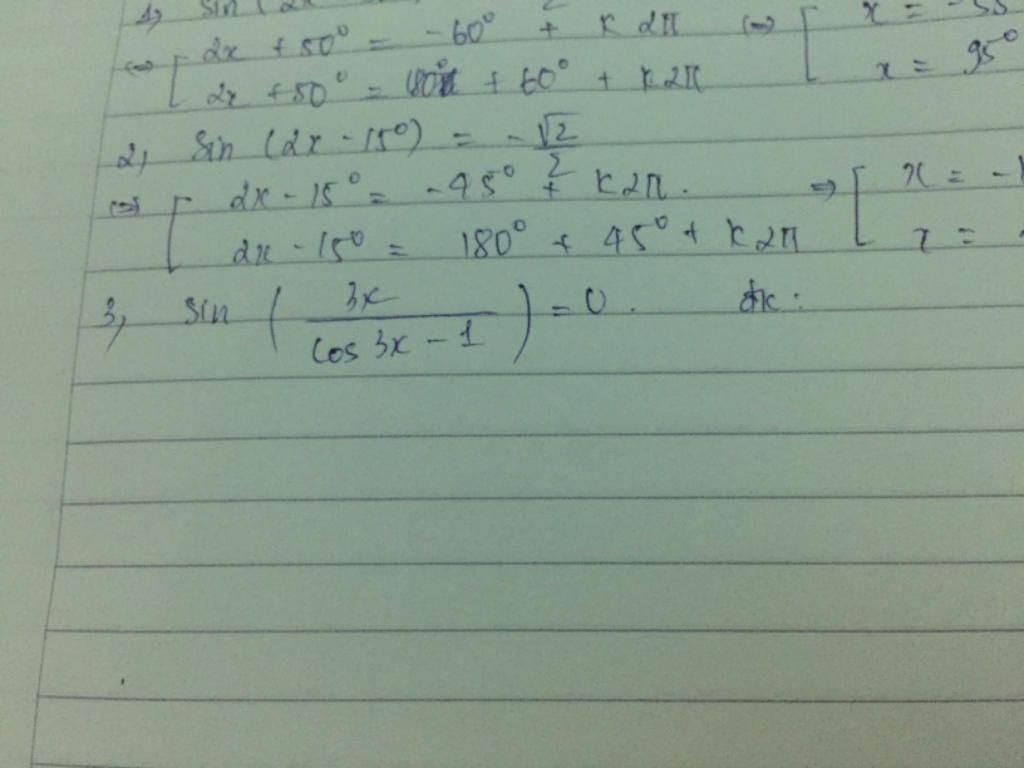 1, sin (2x
⇔ [ 2x + 50° = -60° + k2π ⇔ [ x = -55
2x + 50° = 180° + 60° + k2π x = 95°
2, sin (2x - 15°) = -√2/2
⇔ [ 2x - 15° = -45° + k2π. ⇒ [ x = -1
2x - 15° = 180° + 45° + k2π x =
3, sin ( 3x / cos 3x - 1 ) = 0. đk: